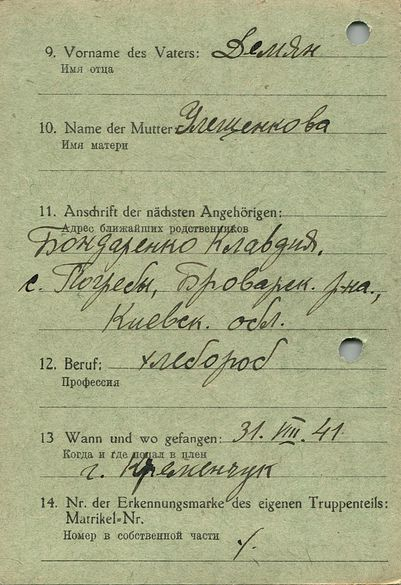 9. Vorname des Vaters: Демян
Имя отца
10. Name der Mutter: Улещенкова
Имя матери
11. Anschrift der nächsten Angehörigen:
Адрес ближайших родственников
Бондаренко Клавдия,
с. Погребы, Броварск. р-на,
Киевск. обл.
12. Beruf: хлебороб
Профессия
13 Wann und wo gefangen: 31. VIII. 41
Когда и где попал в плен
г. Кременчук
14. Nr. der Erkennungsmarke des eigenen Truppenteils:
Matrikel=Nr.
Номер в собственной части